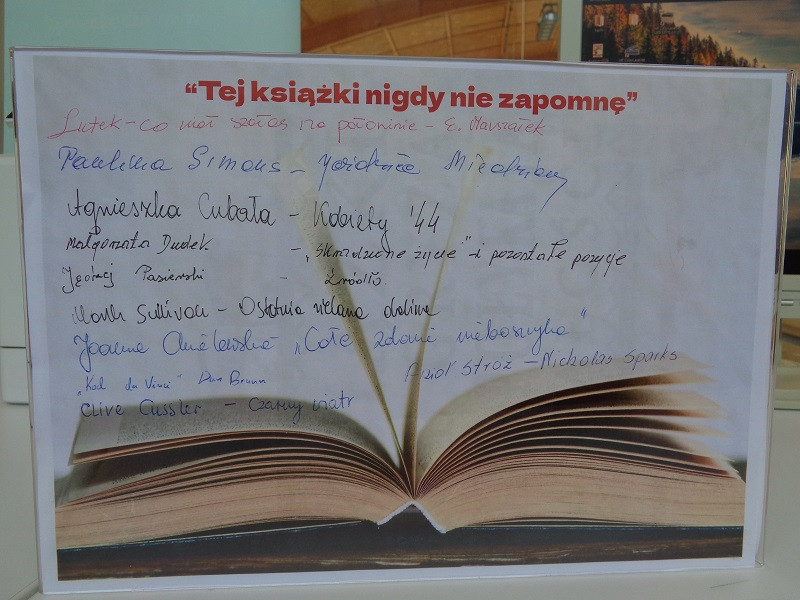 “Tej książki nigdy nie zapomnę”
Lutek - co miał szałas na połoninie - E. Marszałek
Paullina Simons - Jeździec Miedziany
Agnieszka Cubała - Kobiety '44
Małgorzata Dudek - „Skradzione życie" - i pozostałe pozycje
Jędrzej Pasierski - Źródło
Mark Sullivan - Ostatnia zielona dolina
Joanna Chmielewska „Całe zdanie nieboszczyka"
Anioł Stróż - Nickolas Sparks
„Kod da Vinci" Dan Brown
Clive Cussler - Czarny wiatr